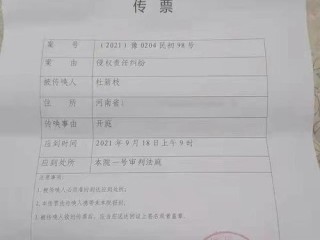 传票
案 号 （2021）豫0204民初98号
案 由 侵权责任纠纷
被传唤人
住 所 河南省
传唤事由 开庭
应到时间 2021年9月18日上午9时
应到处所 本院一号审判法庭
注意事项：
1.被传唤人必须准时到达应到处所；
2.本传票由被传唤人携带来本院报到；